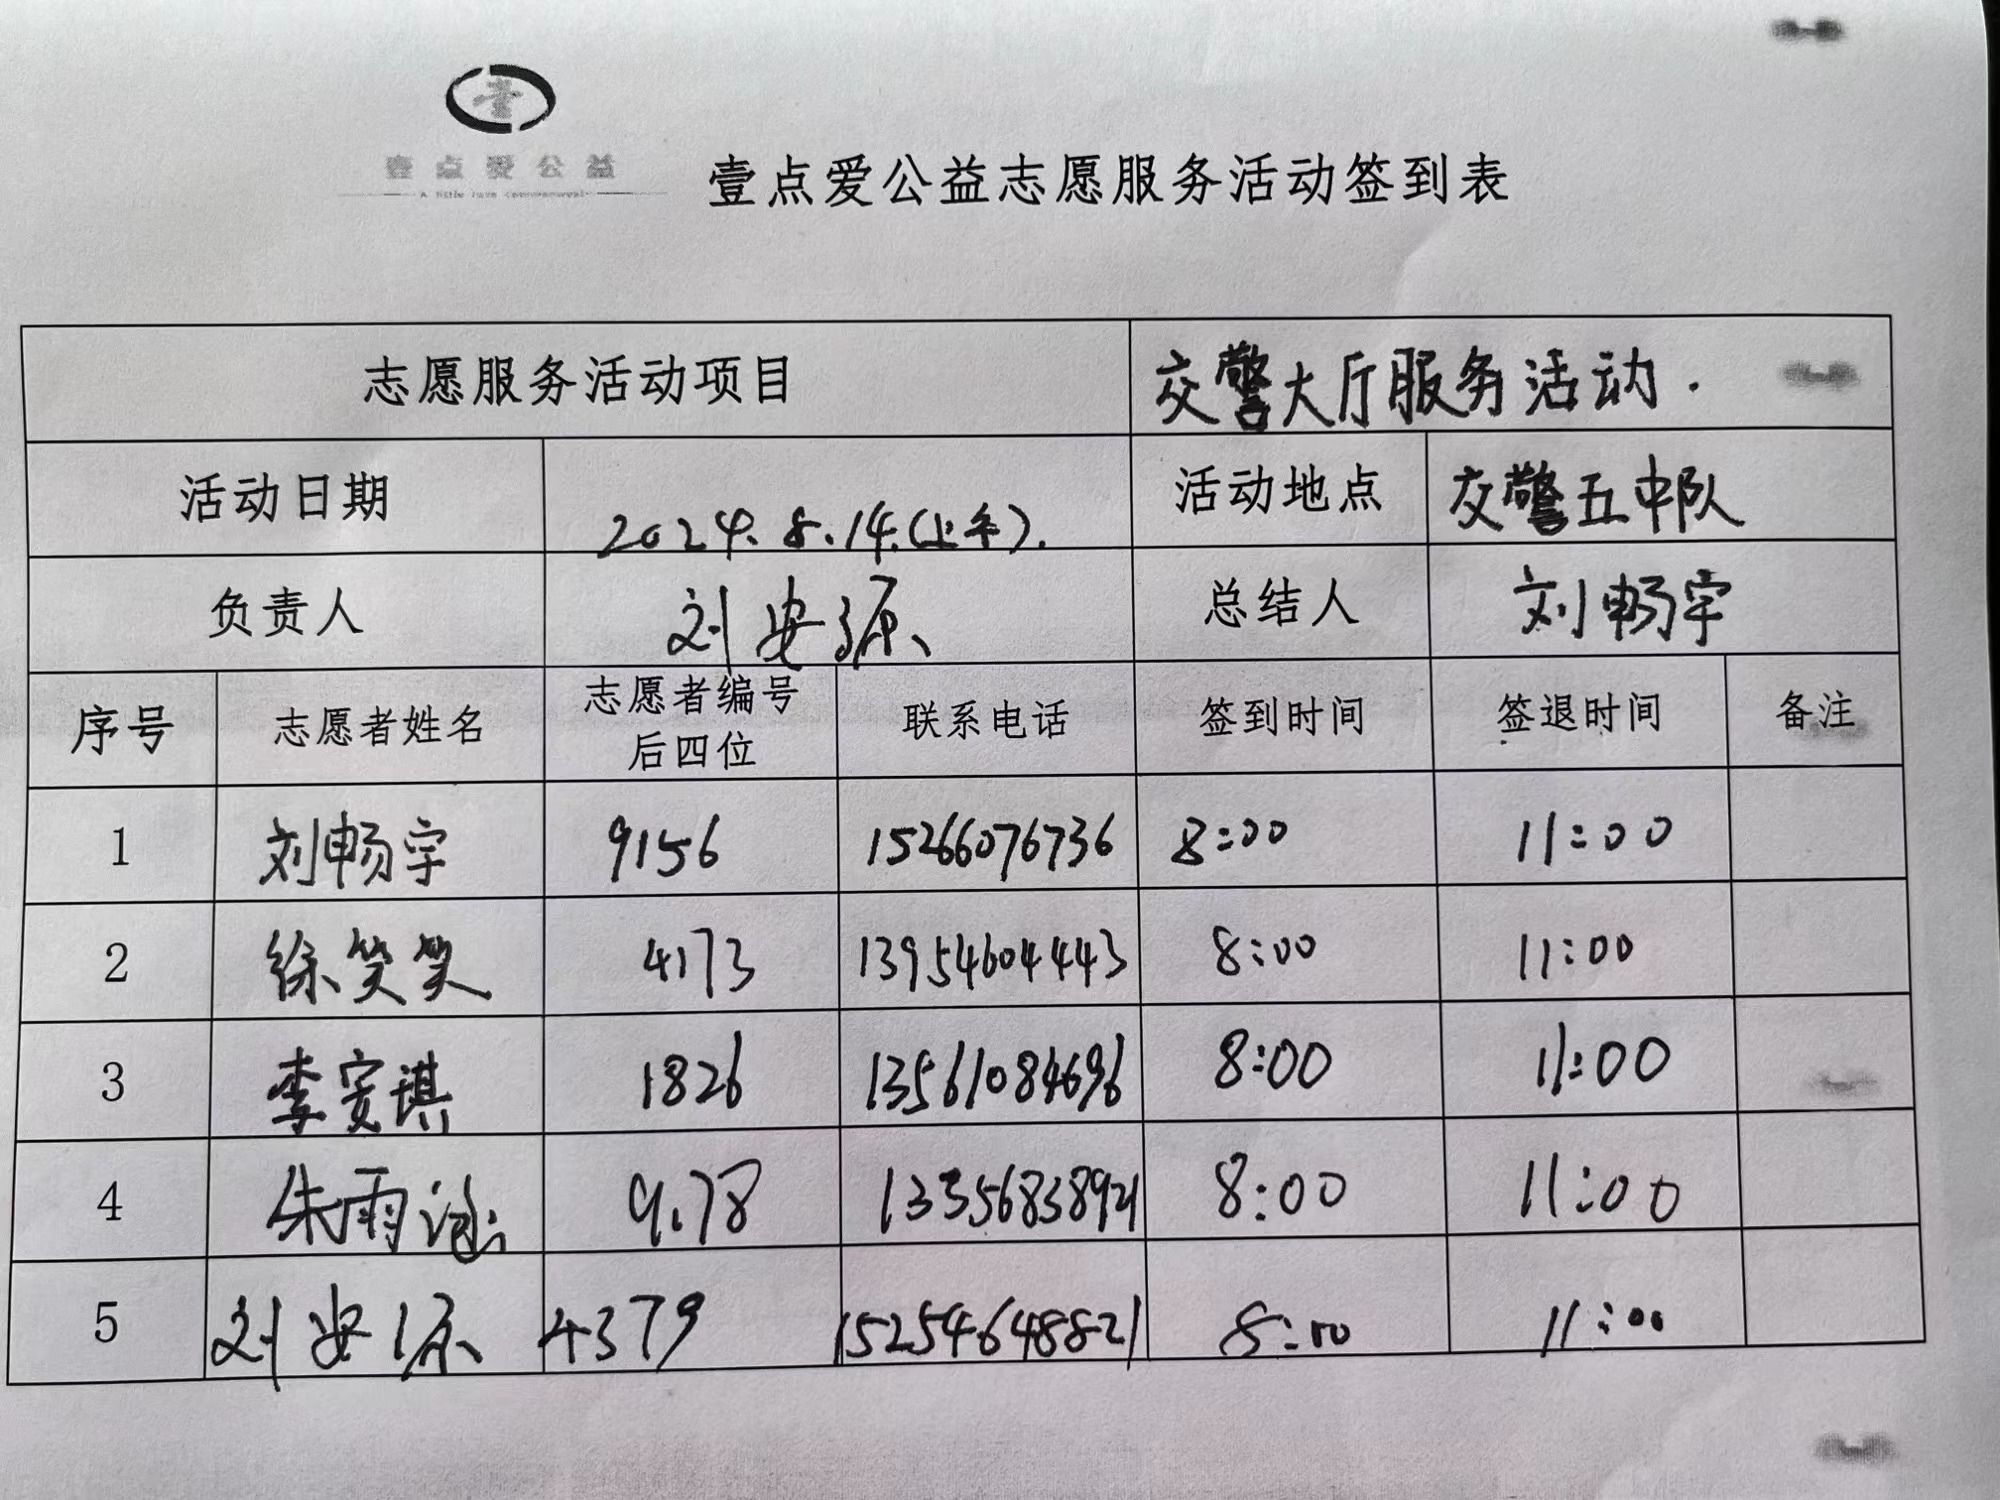 壹
壹点爱公益
壹点爱公益志愿服务活动签到表
志愿服务活动项目 交警大厅服务活动.
活动日期 2024.8.14.(上午). 活动地点 交警五中队
负责人 刘安源 总结人 刘畅宇
序号 志愿者姓名 志愿者编号 联系电话 签到时间 签退时间 备注
后四位
1 刘畅宇 9156 15266076736 8:00 11:00
2 徐笑笑 4173 13954604443 8:00 11:00
3 李安琪 1826 13561084696 8:00 11:00
4 朱雨涵 9178 13356838921 8:00 11:00
5 刘安源 4379 15254648821 8:00 11:00